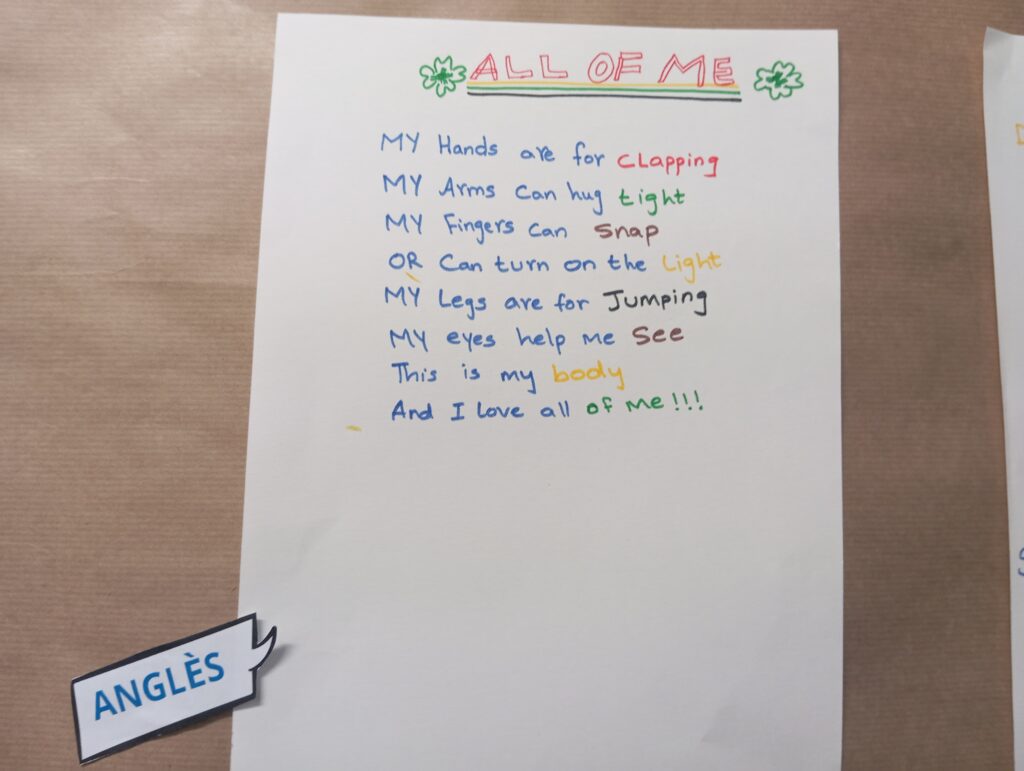 ALL OF ME
MY Hands are for CLapping
MY Arms can hug tight
MY Fingers can snap
OR Can turn on the Light
MY Legs are for Jumping
MY eyes help me See
This is my body
And I Love all of Me!!!
ANGLÈS